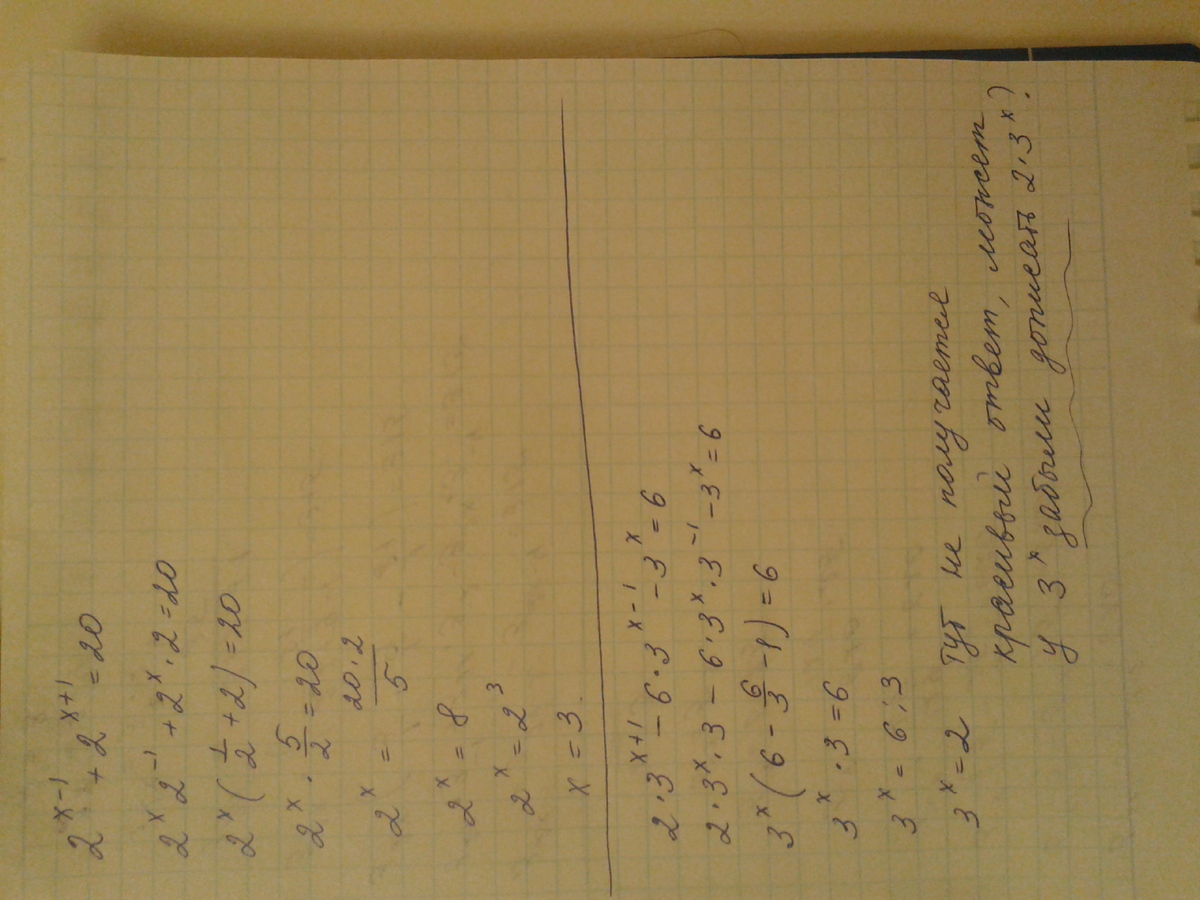 2^{x-1} + 2^{x+1} = 20
2^x 2^{-1} + 2^x · 2 = 20
2^x (1/2 + 2) = 20
2^x · 5/2 = 20
2^x = 20·2/5
2^x = 8
2^x = 2^3
x = 3.
2·3^{x+1} - 6·3^{x-1} - 3^x = 6
2·3^x·3 - 6·3^x·3^{-1} - 3^x = 6
3^x (6 - 6/3 - 1) = 6
3^x · 3 = 6
3^x = 6:3
3^x = 2
Тут не получается
красивый ответ, может
у 3^x забыли дописать 2·3^x?